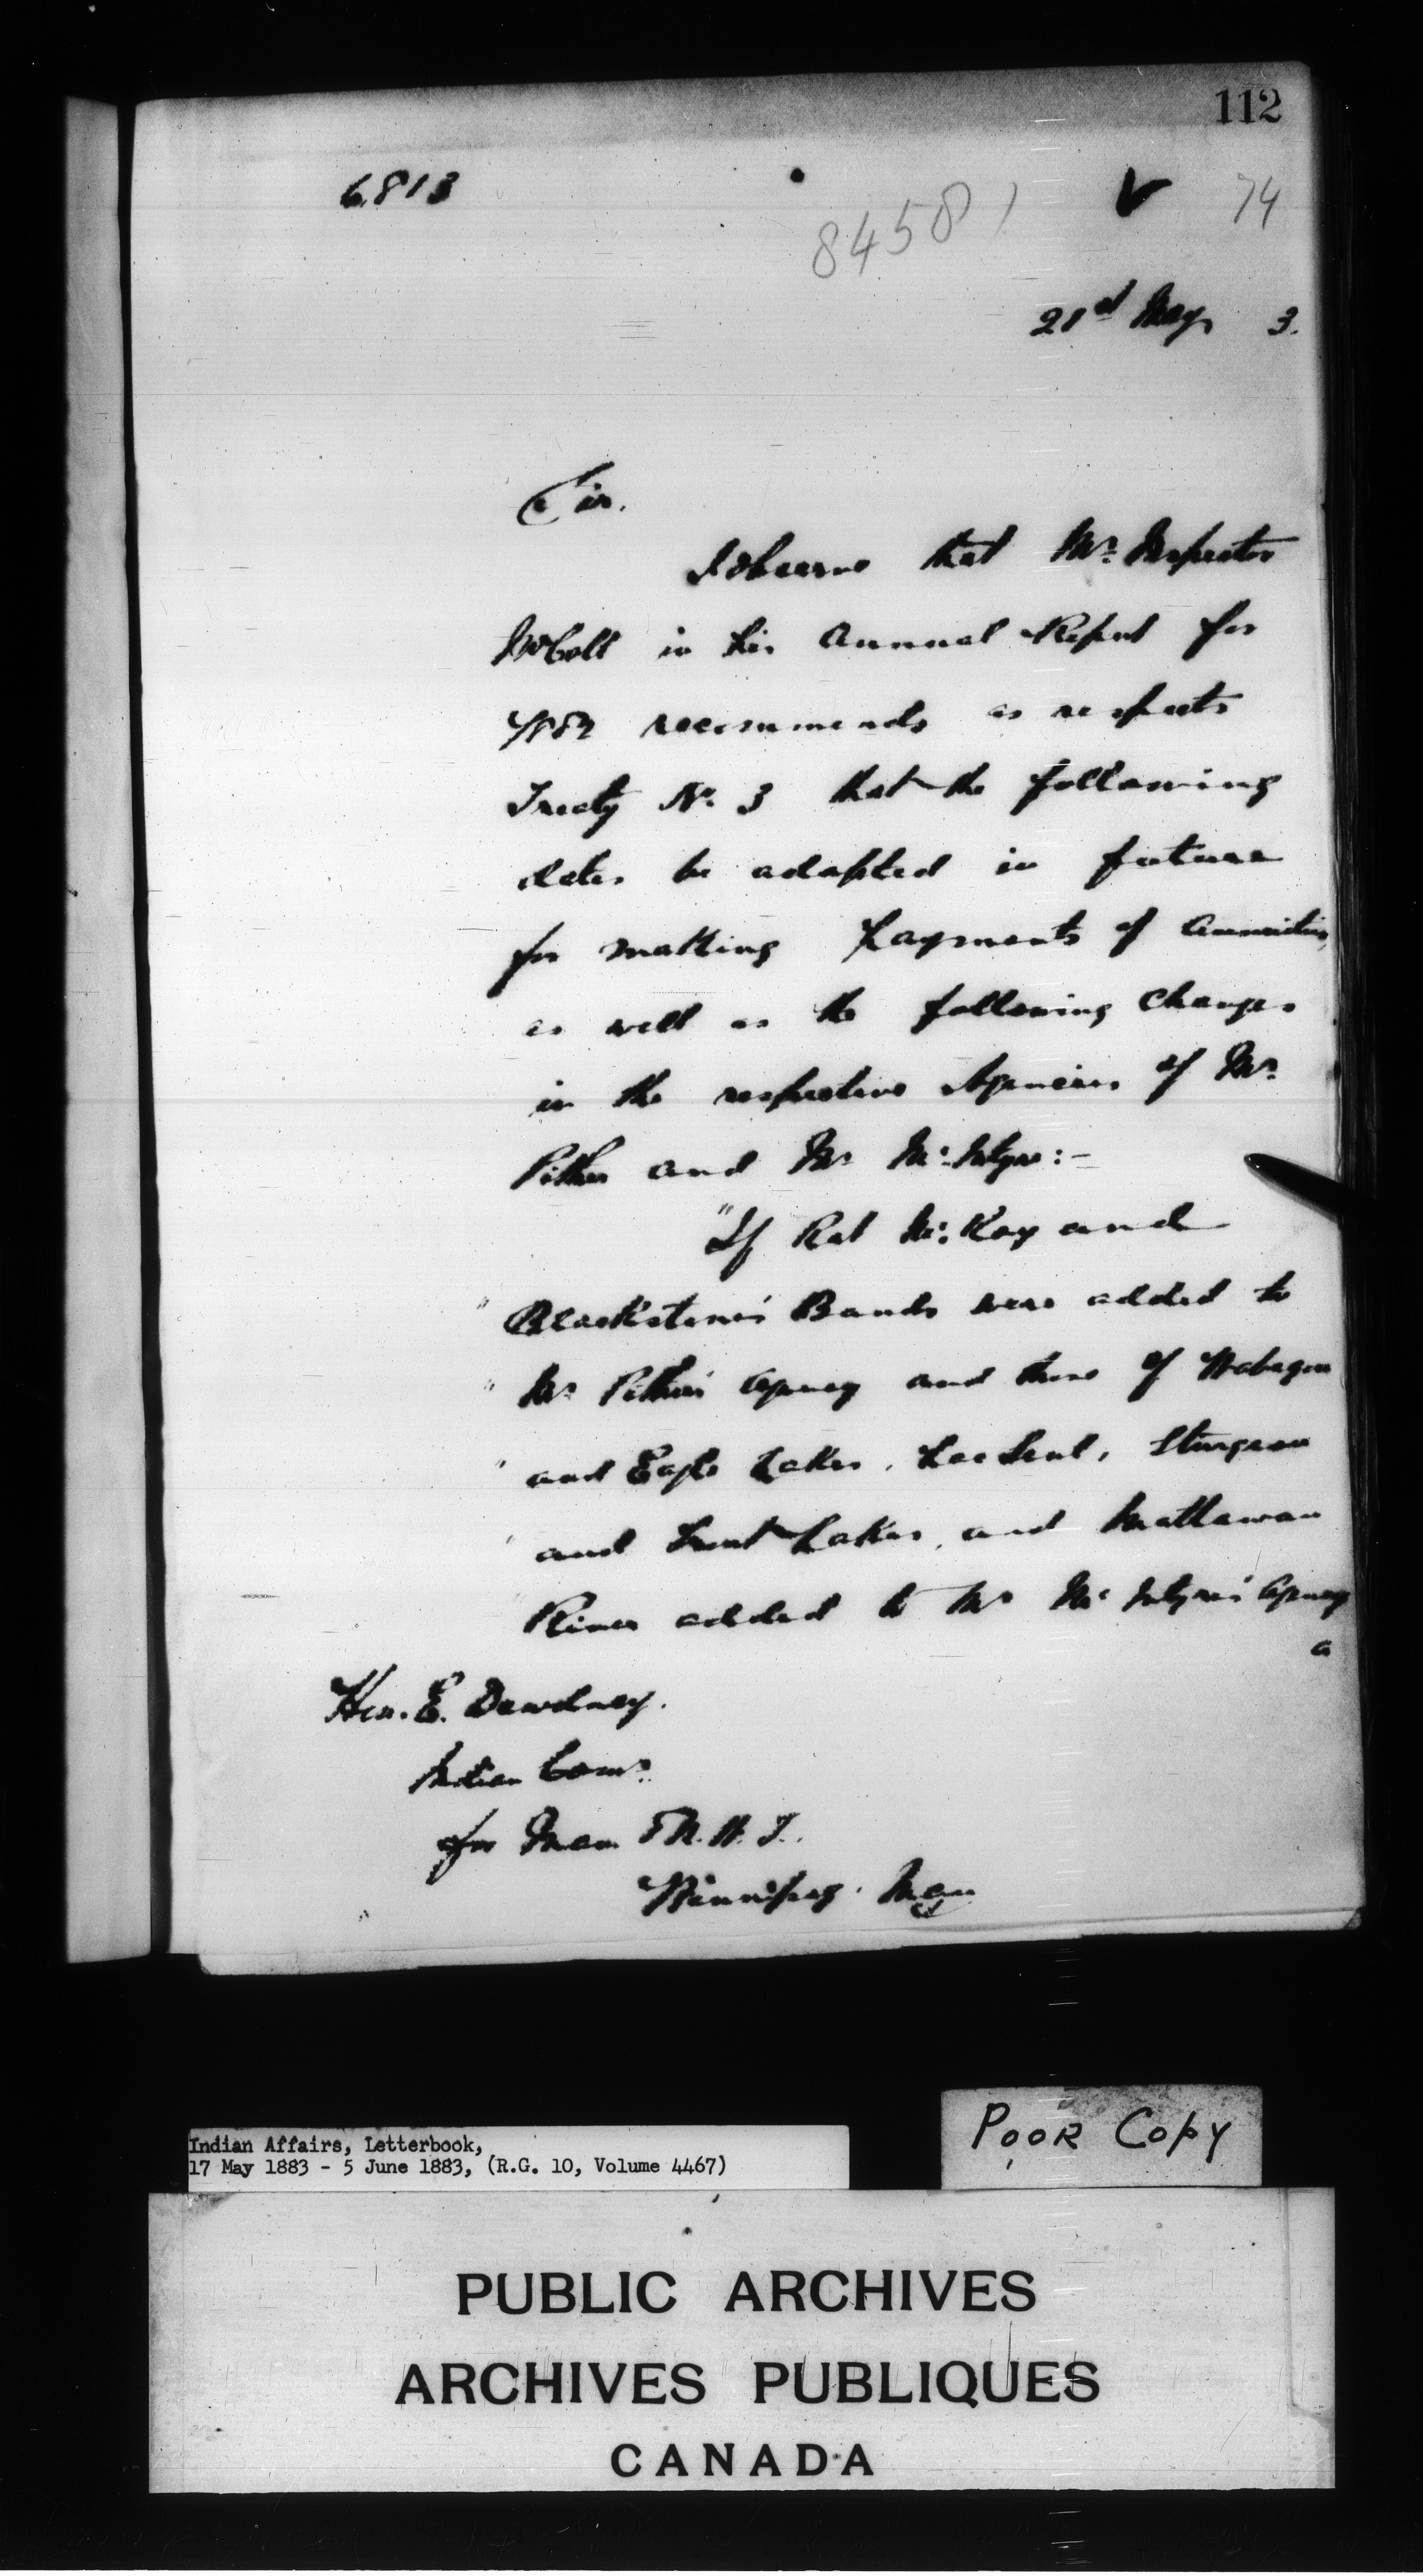 112
6813
84581
74
21st May 3.
Sir.
I observe that Mr. Inspector
McColl in his Annual Report for
1882 recommends as respects
Treaty No. 3 that the following
dates be adopted in future
for making payments of Annuities,
as well as the following changes
in the respective Agencies of Mr.
Pither and Mr. McIntyre:-
"If Rat McKay and
" Blackstone's Bands were added to
" Mr. Pither's Agency and those of Wabegon
" and Eagle Lakes, Lac Seul, Sturgeon
" and Trout Lakes, and Mattawan
" River added to Mr. McIntyre's Agency
a
Hon. E. Dewdney.
Indian Comr.
for Man & N.W.T.
Winnipeg. Man
Indian Affairs, Letterbook,
17 May 1883 - 5 June 1883, (R.G. 10, Volume 4467)
POOR COPY
PUBLIC ARCHIVES
ARCHIVES PUBLIQUES
CANADA